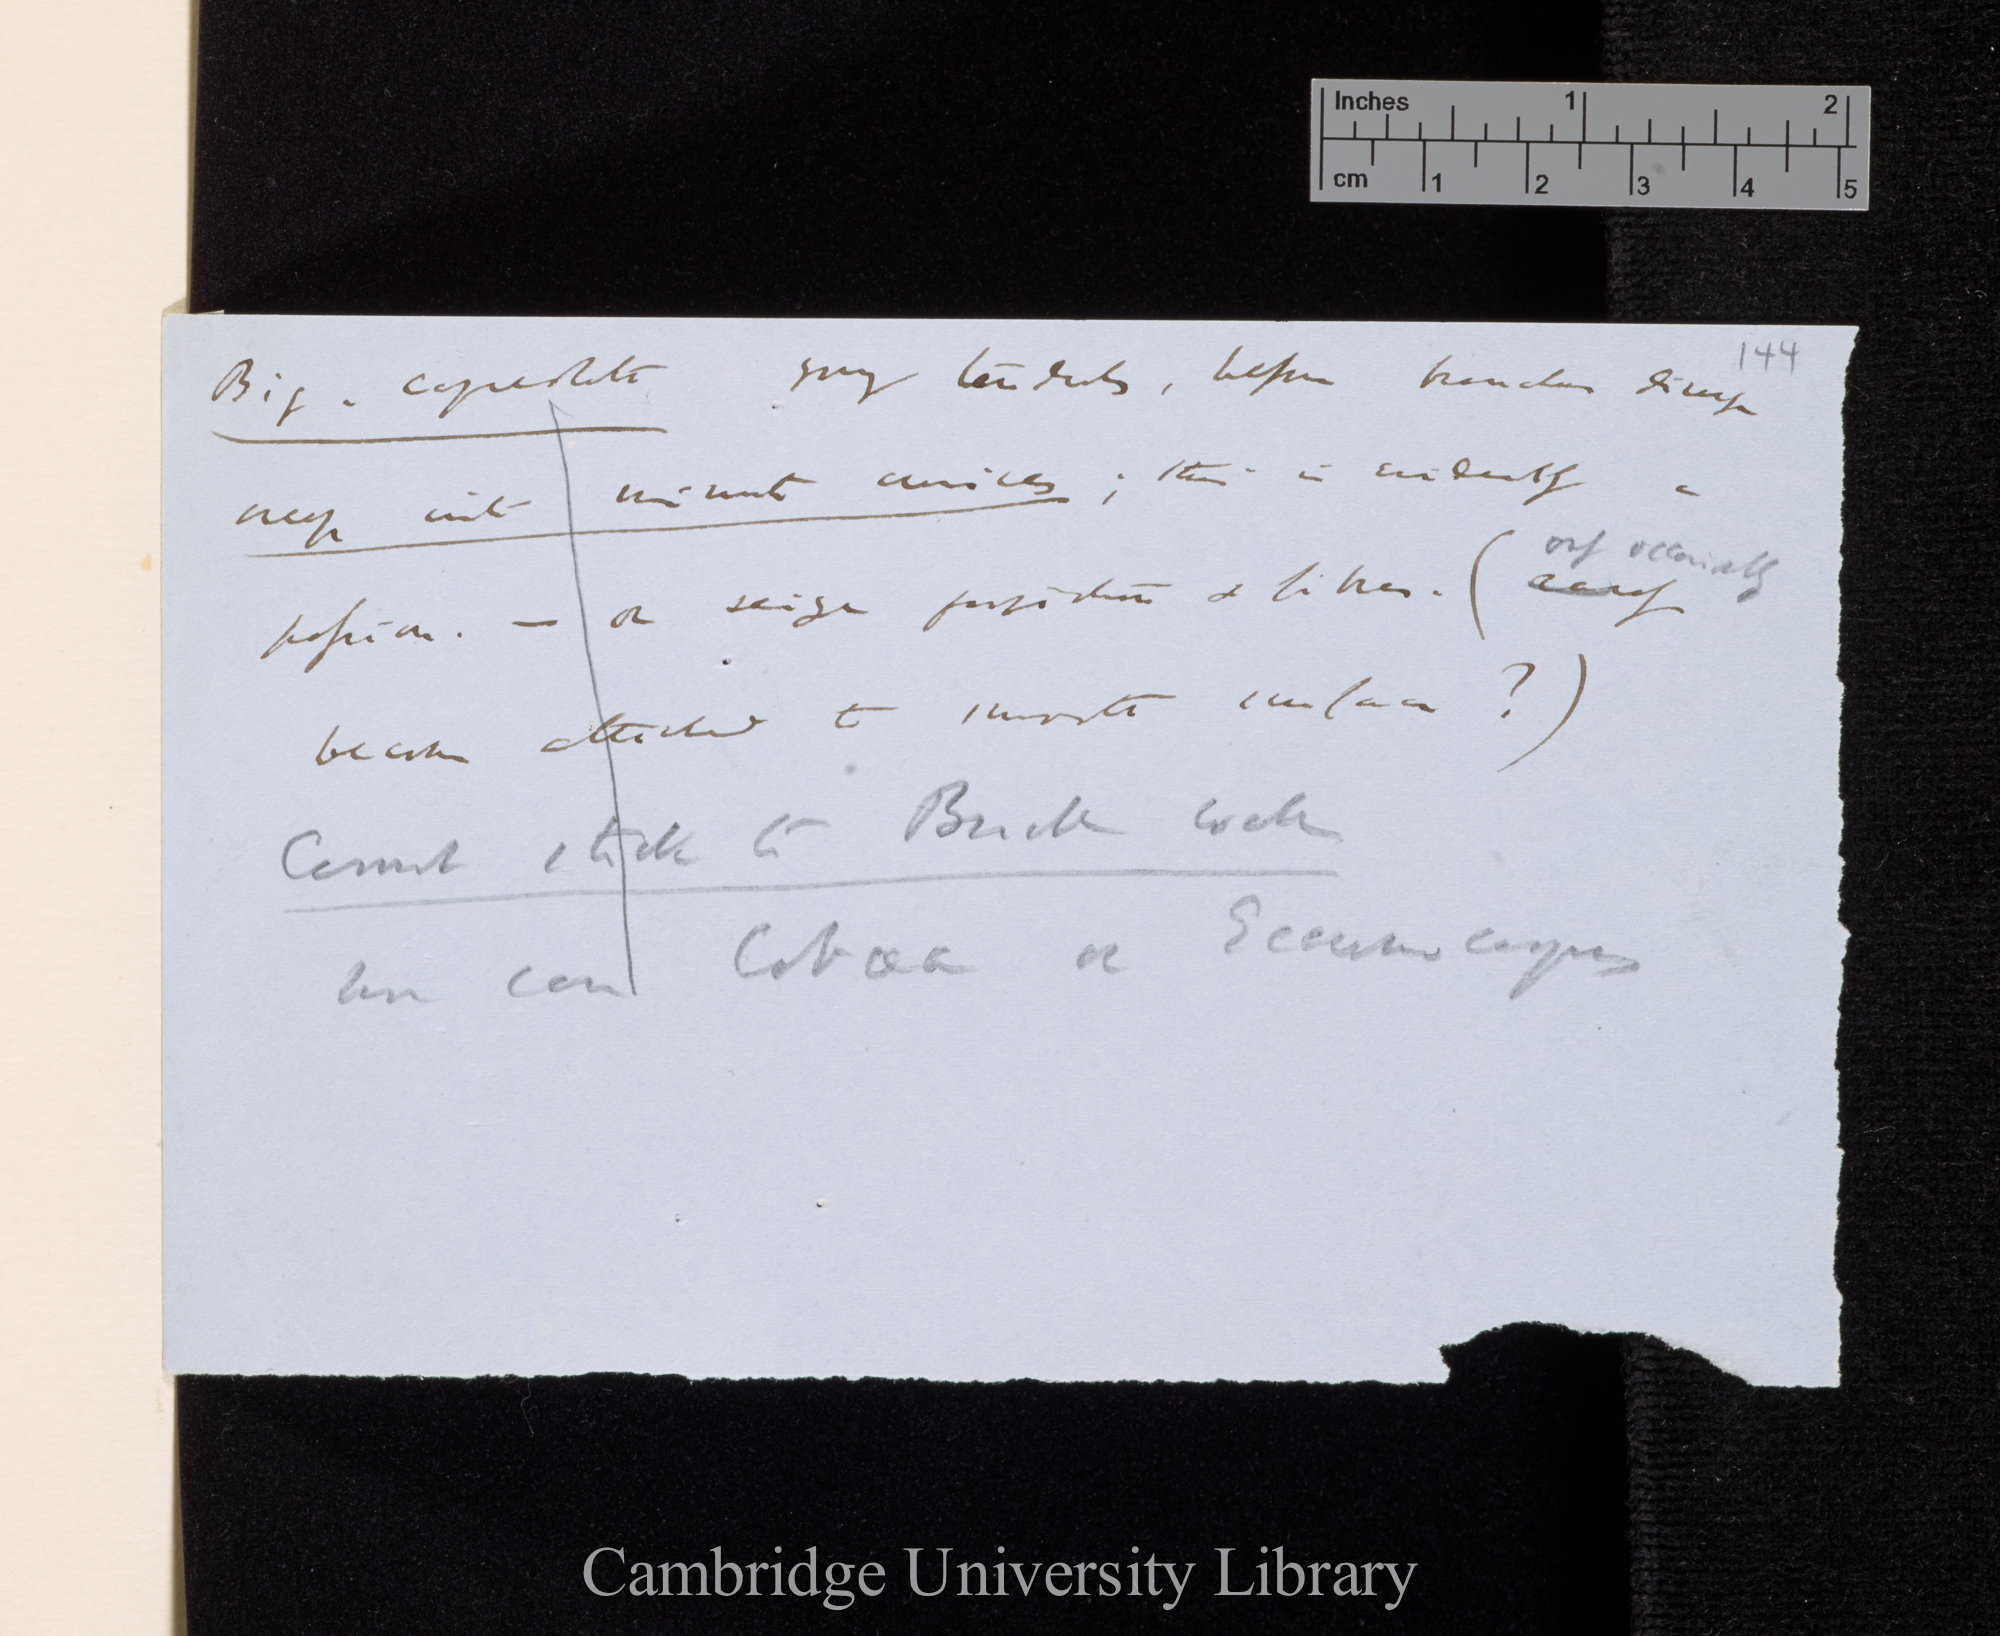 Inches 1 2
cm 1 2 3 4 5
144
Big. capreolata young tendrils, before branches diverge
creep into minute crevices; this is evidently a
passion. — or seize projections & fibres. (
only occasionally
become attached to smooth surfaces?)
Cannot stick to Brick work
nor can Cobæa or Eccremocarpus
Cambridge University Library